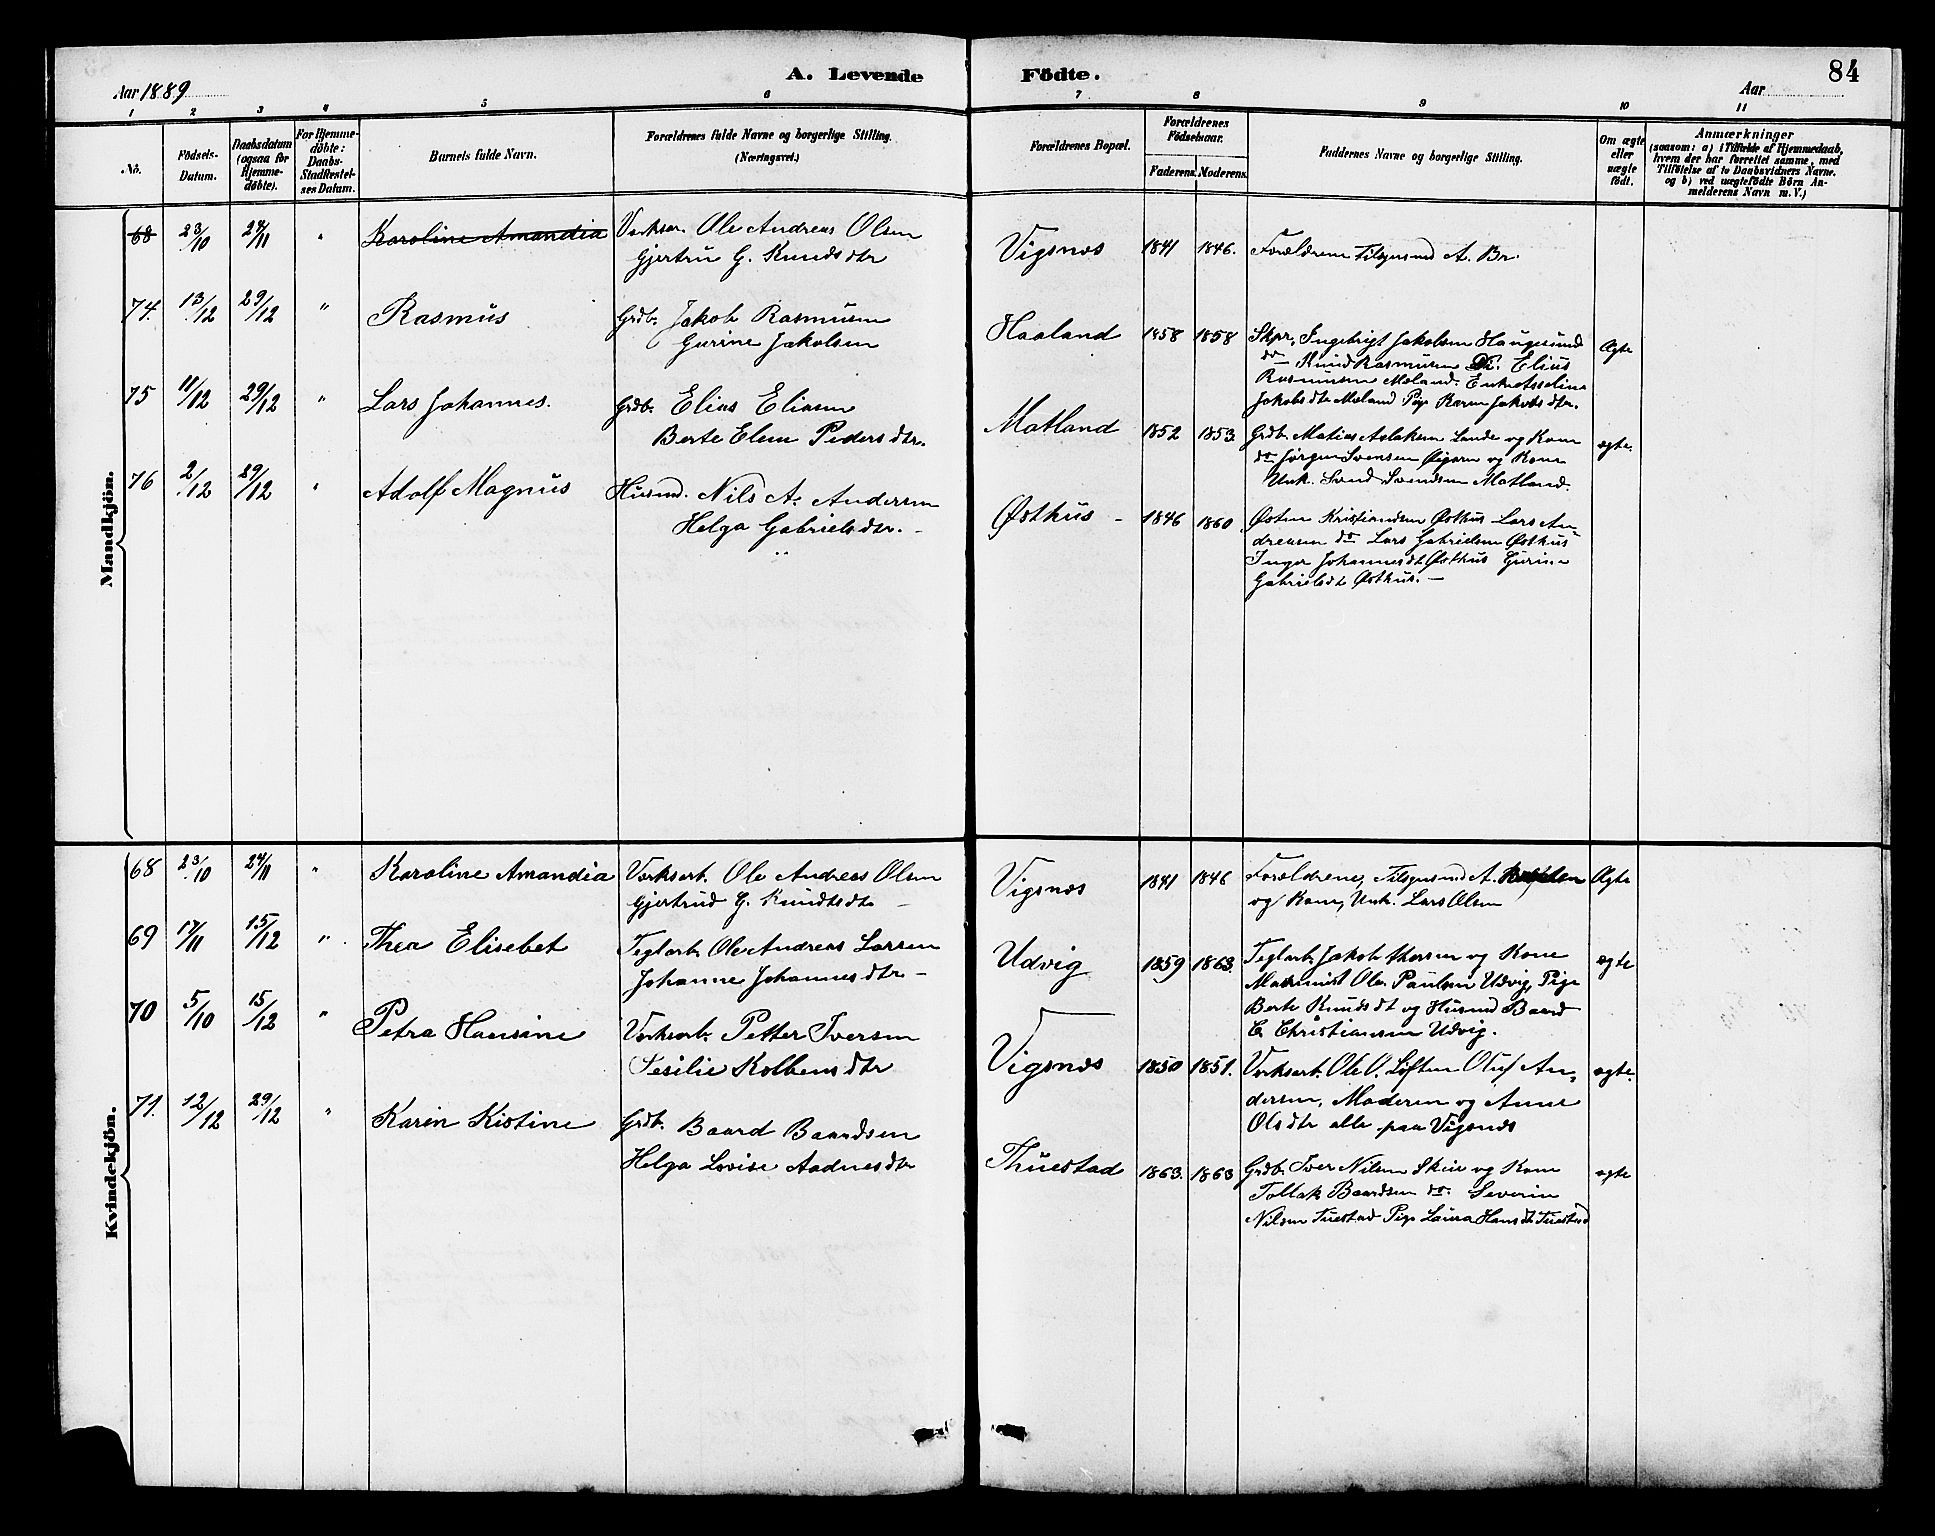 A. Levende Födte.
84
Aar 1889
Aar
1 2 3 4 5 6 7 8 9 10 11
No.
Födsels-Datum.
Daabsdatum (ogsaa for Hjemmedöbte).
For Hjemmedöbte: Daabs-Stadfæstelses Datum.
Barnets fulde Navn.
Forældrenes fulde Navne og borgerlige Stilling. (Næringsvei.)
Forældrenes Bopæl.
Forældrenes Födselsaar.
Faderens. Moderens.
Faddernes Navne og borgerlige Stilling.
Om ægte eller uægte födt.
Anmærkninger
(saasom: a) i Tilfælde af Hjemmedaab,
hvem der har forrettet samme, med
Tilföielse af to Daabsvidners Navne.
og b) ved uægtefödte Börn An-
melderens Navn m. V.)
Mandkjön.
68 23/10 24/11 " Karoline Amandia
Verksar. Ole Andreas Olsen
Gjertru G. Knudsdtr
Vigsnæs 1841 1846. Forældrene Tilsynsmd A. Br.
74. 13/12 29/12 " Rasmus
Grdb. Jakob Rasmusen
Gurine Jakobsen
Haaland 1858 1858
Skpr. Ingebrigt Jakobsen Haugesund
do Knud Rasmusen Elius
Rasmusen Mæland. Enke Asseline
Jakobsdtr Mæland Pige Karen Jakobsdtr.
Ægte
75 11/12 29/12 " Lars Johannes.
Grdb. Elias Eliasen
Berte Elen Pedersdtr.
Matland 1852 1853
Grdb. Matias Aslaksen Lande og Kone
do Jørgen Svensen og Kone
Unk. Svend Svendsen Matland.
ægte.
76 2/12 29/12 " Adolf Magnus
Husmd. Nils A. Andersen
Helga Gabrielsdtr. -
Østhus - 1846 1860
Østen Kristiandsen Østhus Lars An-
dreasen do Lars Gabrielsen Østhus
Inger Johannesdt Østhus Gurine
Gabrielsdt Østhus. -
Kvindekjön.
68 23/10 24/11 " Karoline Amandia
Verksarb. Ole Andreas Olsen
Gjertrud G. Knudtsdtr -
Vigsnæs 1841 1846
Forældrene, Tilsynsmd A.
og Kone, Unk. Lars Olsen
Ægte
69 17/11 15/12 " Thea Elisebet
Teglarb. Ole Andreas Larsen
Johanne Johannesdtr -
Udvig 1859 1863.
Teglarb. Jakob Thorsen og Kone
Maskinist Ole Paulsen Udvig, Pige
Berte Knudsdt og Husmd Baard
C. Christiansen Udvig.
ægte
70 5/10 15/12 " Petra Hansine
Verksarb. Petter Iversen
Sesilie Kolbensdtr
Vigsnæs 1850 1851.
Verksarb. Ole O. Løften Oluf An-
dersen, Moderen og Anne
Olsdtr alle paa Vigsnæs
ægte.
71. 12/12 29/12 " Karen Kistine
Grdb. Baard Baardsen
Helga Lovise Aadnesdtr
Thuestad 1863. 1863
Grdb. Iver Nilsen Skeie og Kone
Tollak Baardsen do. Severin
Nilsen Tuestad Pige Laura Hansdt Tuestad
ægte